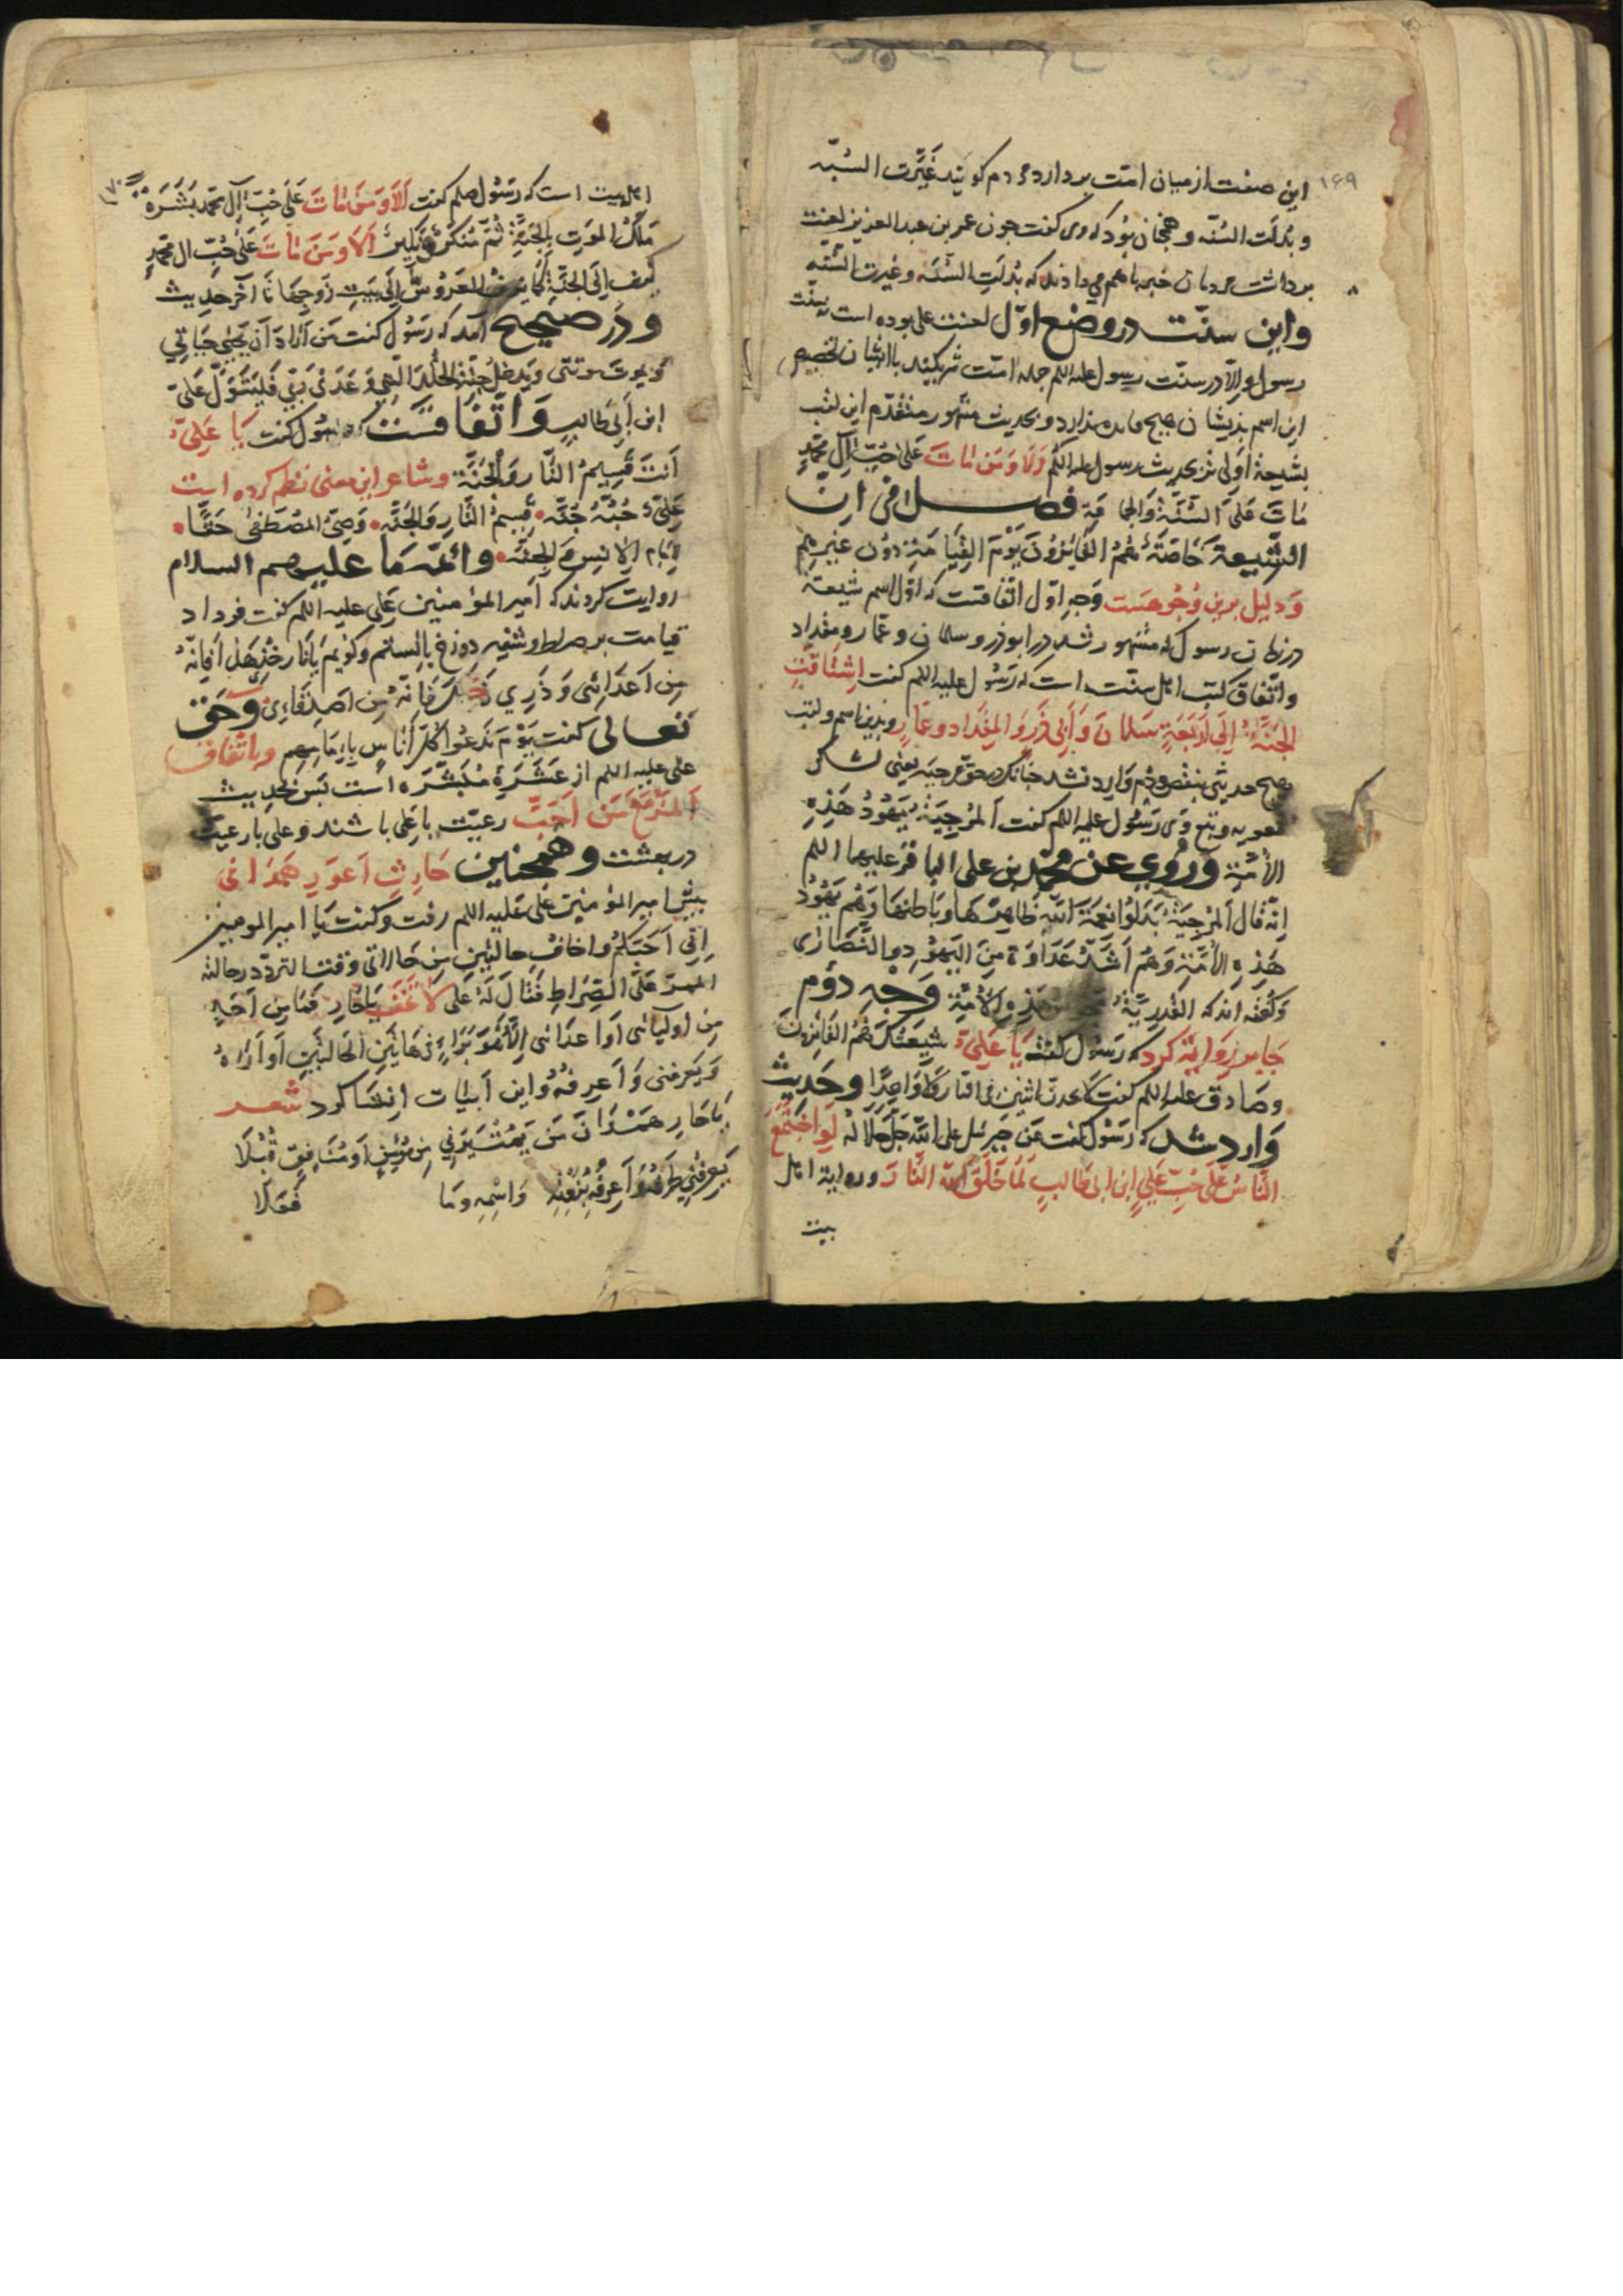 ۱۶۹
این صفت از میان امت بردارد مردم کویند غَیَّرت السُنّه
و بُدلَت السُنّه و همچنان بُود که وی کفت جون عمر بن عبد العزیز لعنت
برداشت مردمان خبر باهم می دادند که بُدلَتِ السُنَه و غیرت السُنّه
واین سنّت در وضع اوّل لعنت علی بوده است بسنّت
رسول والّا در سنّت رسول علیه اللم جمله امّت شریکیند با ایشان تخصیص
این اسم بذیشان هیچ فایده ندارد و بحدیث مشهور متقدّم این لقب
بشیعة اَولی تر بحدیث رسول علیه اللم وَلَا وَمَن مَاتَ عَلیَ حُبِّ آلِ محَمَّدٍ
مَاتَ عَلیَ السُنّة وَالجَمَاعَةِ فصل فی انّ
الشّیعةَ خَاصّةً هُمُ الفَائِزوُنَ یَوْمَ القِیَامَةِ دوُن غیرِهِم
وَدلیل برین وُجُوهست وَجهِ اوّل اتفاقست که اوّل اسم شیعة
در زمان رسول که مشهور شد در ابوذر و سلمان و عمّار و مقداد
واتّفاق کتب اهل سنّت است که رَسُول علیه اللم کفت اِشتَاقَتِ
الجَنَّةُ اِلَی اَربَعَةٍ سَلمانَ وَأَبی ذَرٍ وَالمِقدَاد و عَمّارٍ و بدین اسم و لقب
هیچ حدیثی بنقص و ذم وَارد نشد جنانک در حق مرجیَه یعنی لشکر
معویه و تبع وی رَسُول علیه اللم کفت اَلمُرجِیَةُ یَهُودُ هَذِهِ
الاُمَّةِ وَرُوِی عَن محَمَّد بن علی الباقر علیهما اللم
اِنّه قَال اَلمُرجِیَةُ بَدَّلُوا نِعمَةَ اَللّهِ ظَاهِرَهَا وَبَاطِنهَا وَهُم یَهُودُ
هَذِهِ الاُمَّةِ وَهُم اَشَدُّ عَدَاوَةً مِنَ الیَهُودِ والنَّصَارَی
وَکفته اند که القدریّةُ هَذِهِ الاُمَّةِ وَجه دوُم
جَابر رِوَایَة کَرد که رَسُول کفت یَا عَلِیُّ شِیعَتُکَ هُمُ الفَائِزوُنَ
وصَادق علیه اللم کفت وَاحِدًا وحَدِیث
وَارد شد که رَسُول کفت عَن جَبرئیل عَلی اللّه جَلّ جَلَالَهُ لَوِ اجتَمَعَ
النَّاسُ عَلَی حُبِّ عَلِیِّ ابن ابی طَالبٍ لَمَا خَلَقَ اللّه النَّارَ و روایة اهل
بیت
۱۷۰
اهل بیت است که رَسُول صلعم کفت اَلَا وَمَن مَاتَ عَلَی حُبِّ آلِ محَمَّد بَشَّرَهُ
مَلَکُ المَوتِ بِالجَنَّةِ ثُمّ مُنکَرٌ وَنَکِیرٌ اَلَا وَمَن مَاتَ عَلَی حُبِّ ال محَمَّدٍ
یُزَف اِلَی الجَنَّةِ کمَا یُزَفُّ العَرُوسُ اِلَی بَیتِ زَوجِهَا تا آخر حدیث
وَدَر صحیح آمد که رَسُول کفت مَن اَرادَ اَن یَحیَی حَیَاتی
وَیمُوتَ مَوتتی وَیَدخُل جَنَّةَ الخُلدِ الَّتِی وَعَدَنی رَبّی فَلیَتَوَلَّ عَلیَّ
ابن اَبی طَالبٍ وَاتّفَاقست که رسُول کفت یَا عَلیُّ
اَنتَ قَسِیمُ النَّارِ وَالجَنَّة وشاعر این معنی نظم کرده است
عَلیٌّ حُبُّهُ جُنَّة • قَسِیمُ النَّارِ وَالجَنَّة • وَصِیُّ المُصطَفیٰ حَقًّا •
اِمَامُ الاِنسِ وَالجِنَّة • وائمّه مَا علیهم السلام
روایت کردند که اَمیر المؤمنین عَلی علیه اللم کفت فردا د
قیامت بر صراط و شفیر دوزخ بایستم وکویم یَا نَار خُذِی هَذَا فَاِنّهُ
مِن اَعدَائِی وَذَرِی فَاِنّهُ مِن اَصدِقَائی وحَق
تعالی کفت یَوْمَ نَدعُوا کُلَّ اُنَاسٍ بِاِمَامِهِم وباتّفاق
علی علیه اللم از عَشَرَهٔ مُبَشَّرَه است بَس بحدیث
اَلمَرءُ مَعَ مَن اَحَبَّ رعیّت با عَلی باشند و علی با رعیّت
در بهشت وهمچنین حَارِث اَعوَر هَمدَانی
بیش امیر المؤمنین عَلی عَلَیه اللم رفت و کفت یَا امیر المومنین
اِنّی اُحِبّکُم واخافُ حالتین مِن حَالاتی وقت التردد و حالة
المَمَرّ عَلَی الصِّرَاطِ فَقَالَ لَهُ عَلی لَا تَخَف یَا حَارِ فَمَا مِن اَحَدٍ
مِن اَولیائی اَو اَعدَائی اِلّا وَهُوَ یَرَانی فی هَاتَینِ الحَالتَینِ اَو اَرَاهُ
وَیَعرِفنی وَاَعرِفُهُ و این اَبیَات اِنشا کرد شعر
یَا حَارِ هَمدَانَ مَن یَمُتْ یَرَنِی مِن مُؤمِنٍ اَو مُنَافِقٍ قُبُلَا
یَعرِفنِی طَرفُهُ وَاَعرِفُهُ بِنَعتِهِ وَاسْمِهِ وَمَا فَعَلَا